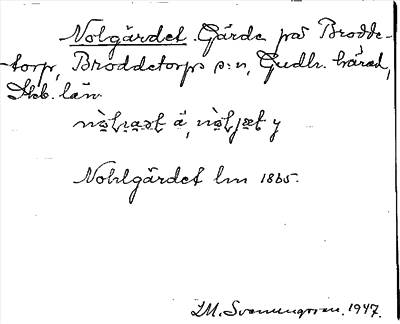 Nolgärdet. Gärde på Brodde-
torp, Broddetorps s:n, Gudh. härad,
Skb. län.
Nohlgärdet lm 1865.
I.M. Svenungsson. 1947.